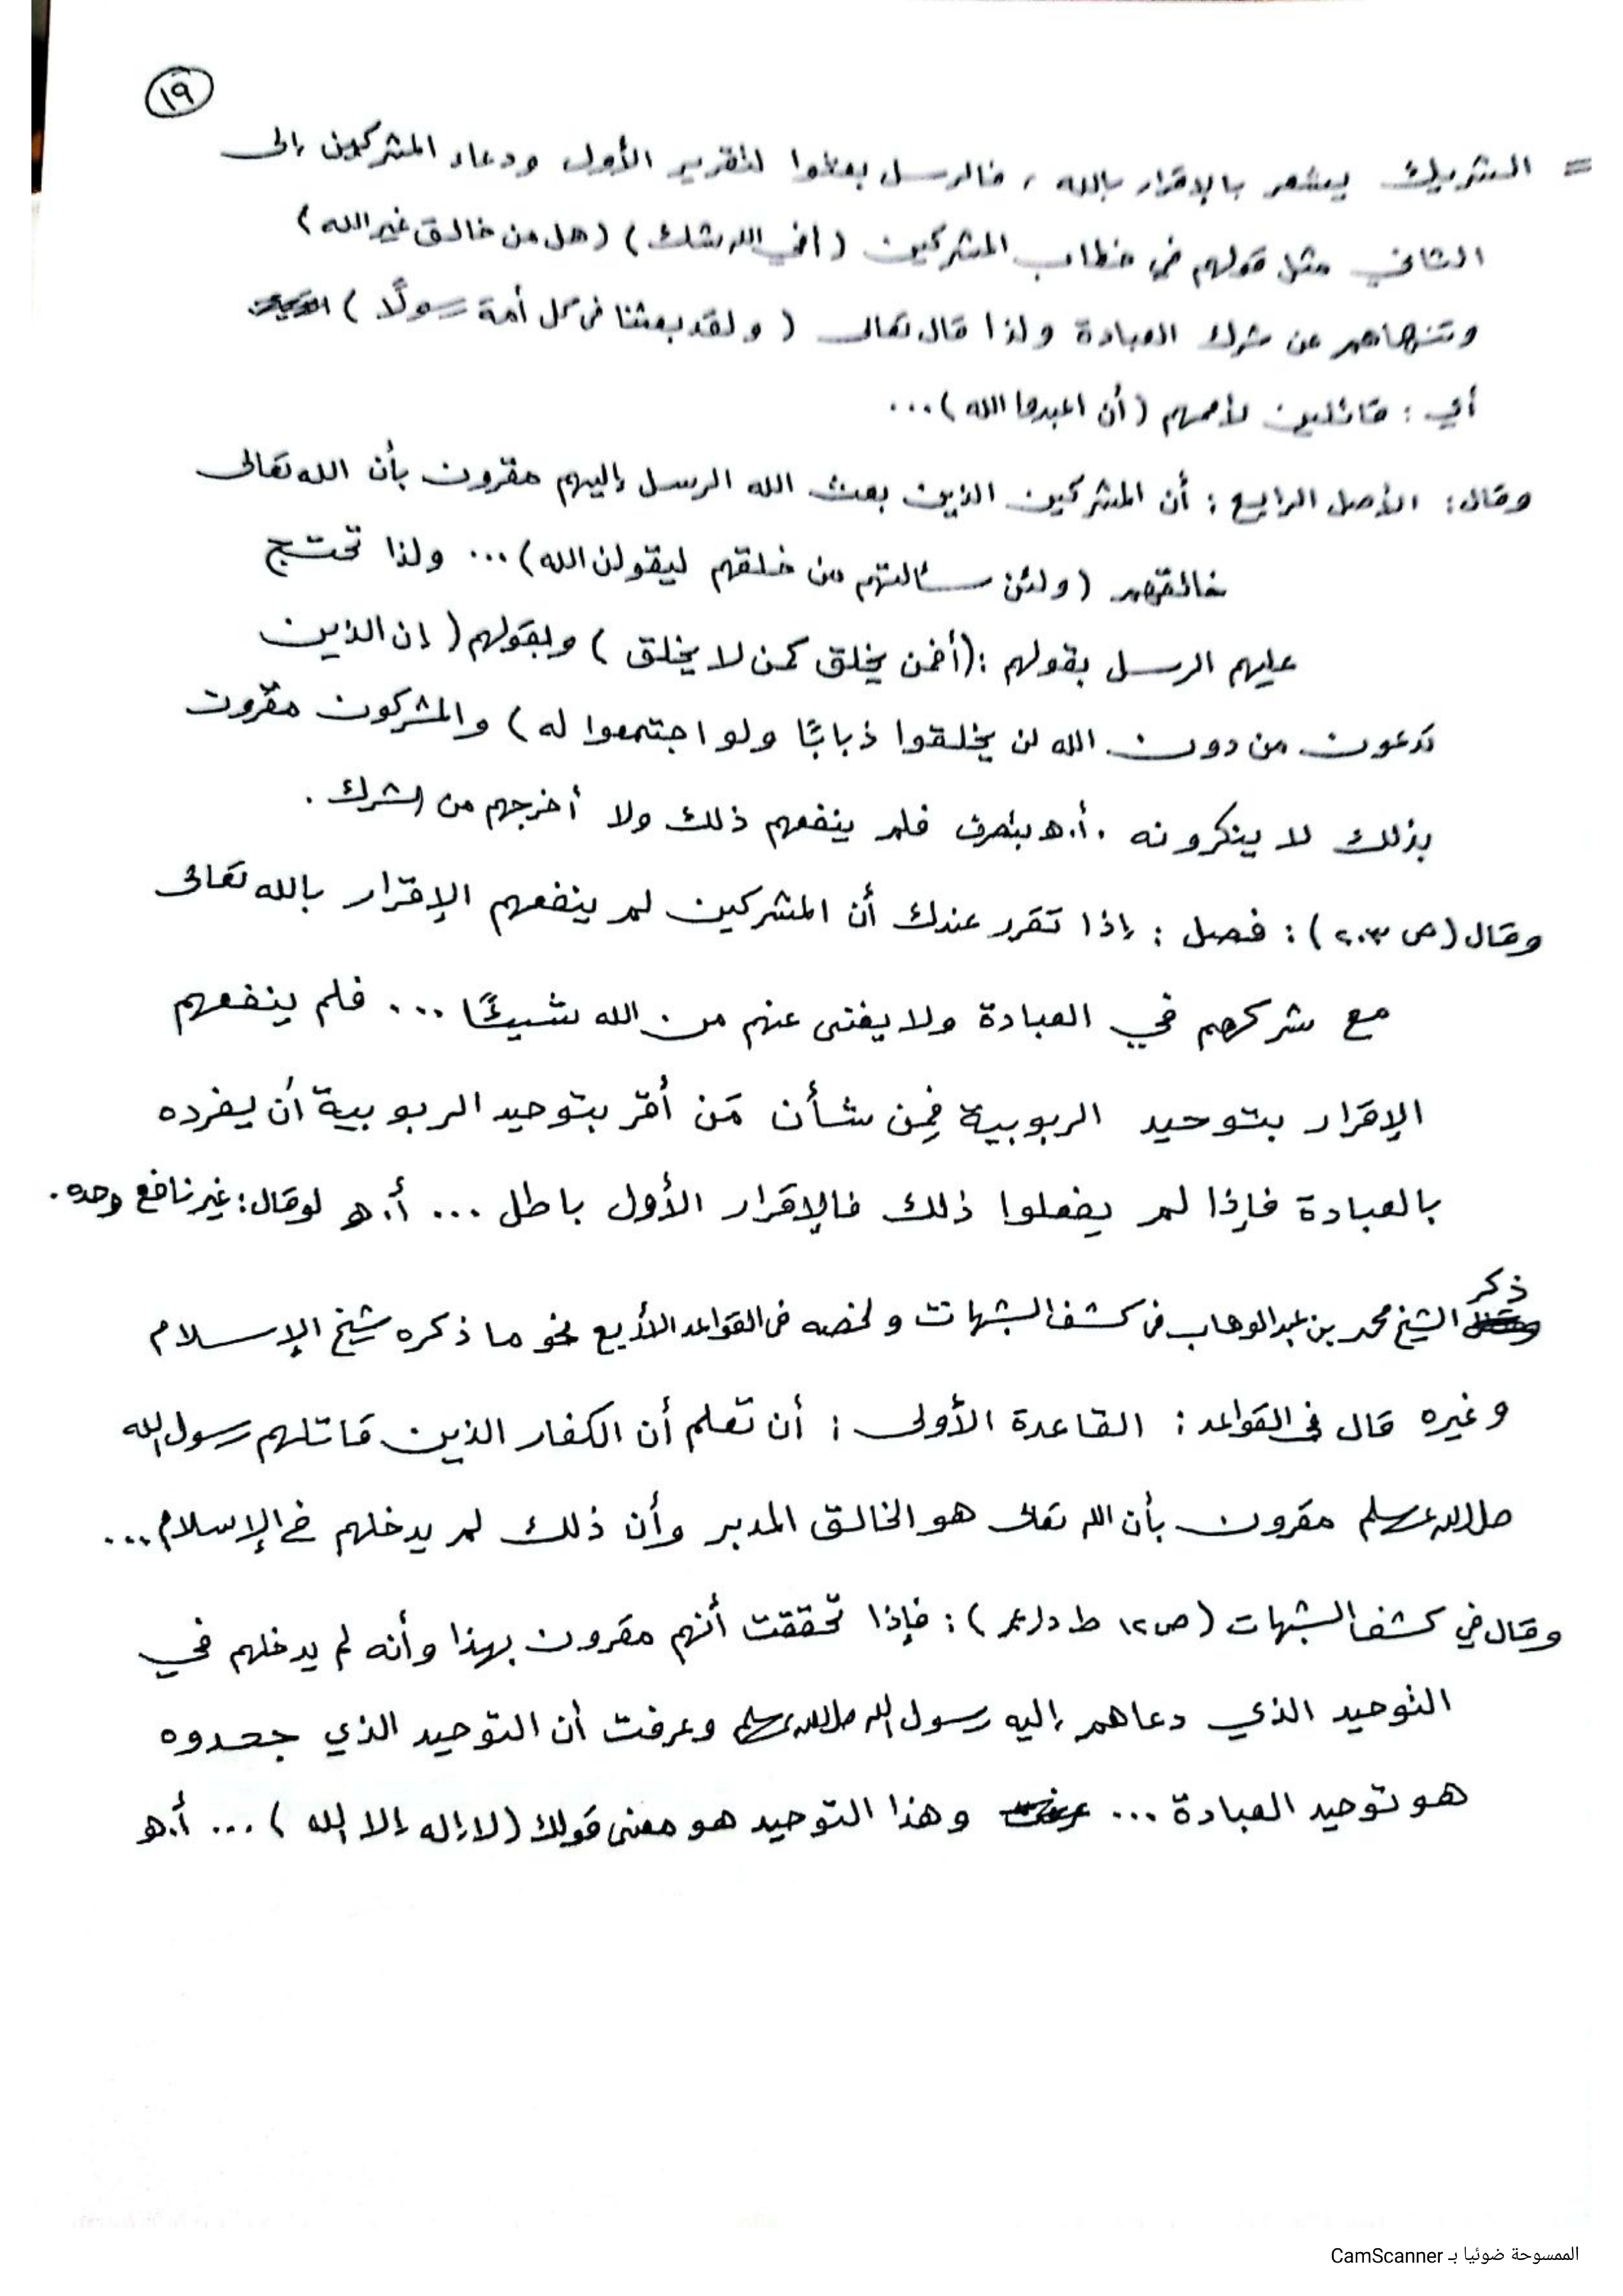 ١٩
= التشريك يشعر بالإقرار بالله ، فالرسل بعثوا لتقرير الأول ودعاء المشركين إلى
الثاني مثل قولهم في خطاب المشركين (أفي الله شك) (هل من خالق غير الله)
وتنهاهم عن شرك العبادة ولذا قال تعالى (ولقد بعثنا في كل أمة رسولًا)
أي : قائلين لأممهم (أن اعبدوا الله)...
وقال: الأصل الرابع : أن المشركين الذين بعث الله الرسل إليهم مقرون بأن الله تعالى
خالقهم (ولئن سألتهم من خلقهم ليقولن الله)... ولذا تحتج
عليهم الرسل بقولهم :(أفمن يخلق كمن لا يخلق) وبقولهم (إن الذين
تدعون من دون الله لن يخلقوا ذبابًا ولو اجتمعوا له) والمشركون مقرون
بذلك لا ينكرونه . أ.ه بتصرف فلم ينفعهم ذلك ولا أخرجهم من الشرك .
وقال (ص ٢٠٣) : فصل : إذا تقرر عندك أن المشركين لم ينفعهم الإقرار بالله تعالى
مع شركهم في العبادة ولا يغنى عنهم من الله شيئًا ... فلم ينفعهم
الإقرار بتوحيد الربوبية فمِن شأن مَن أقر بتوحيد الربوبية أن يفرده
بالعبادة فإذا لم يفعلوا ذلك فالإقرار الأول باطل ... أ.ه لو قال: غير نافع وحده .
ذكر
الشيخ محمد بن عبد الوهاب في كشف الشبهات ولخصه في القواعد الأربع نحو ما ذكره شيخ الإسلام
وغيره قال في القواعد : القاعدة الأولى : أن تعلم أن الكفار الذين قاتلهم رسول الله
صلى الله عليه وسلم مقرون بأن الله تعالى هو الخالق المدبر وأن ذلك لم يدخلهم في الإسلام...
وقال في كشف الشبهات (ص ١٢ ط دار عمر) : فإذا تحققت أنهم مقرون بهذا وأنه لم يدخلهم في
التوحيد الذي دعاهم إليه رسول الله صلى الله عليه وسلم وعرفت أن التوحيد الذي جحدوه
هو توحيد العبادة ... وهذا التوحيد هو معنى قولك (لا إله إلا الله) ... أ.ه
الممسوحة ضوئيا بـ CamScanner